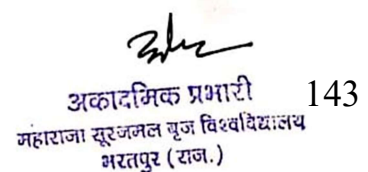 अकादमिक प्रभारी 143
महाराजा सूरजमल बृज विश्वविद्यालय
भरतपुर (राज.)